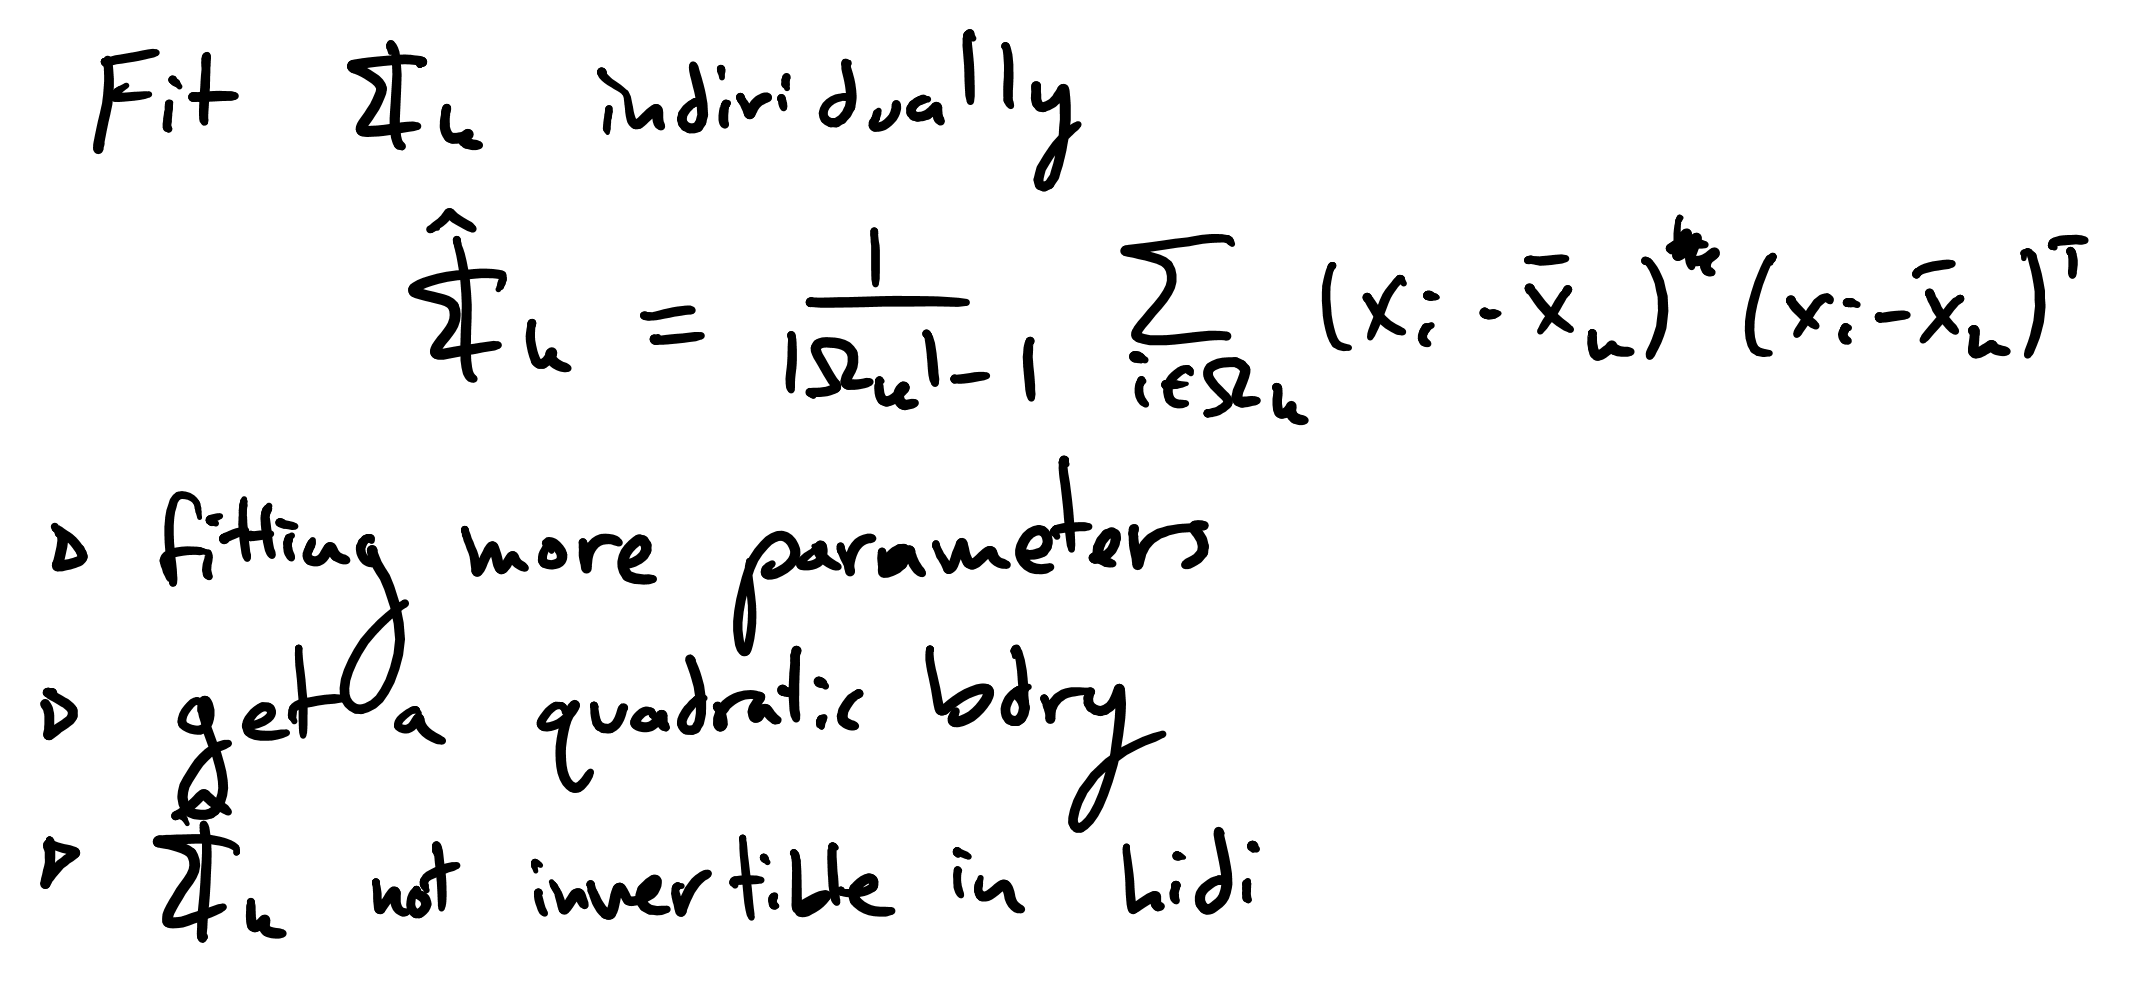 Fit Σ_k individually
Σ̂_k = 1/(|Ω_k| - 1) Σ_{i∈Ω_k} (x_i - x̄_k) (x_i - x̄_k)^T
▷ fitting more parameters
▷ get a quadratic bdry
▷ Σ̂_k not invertible in hidi